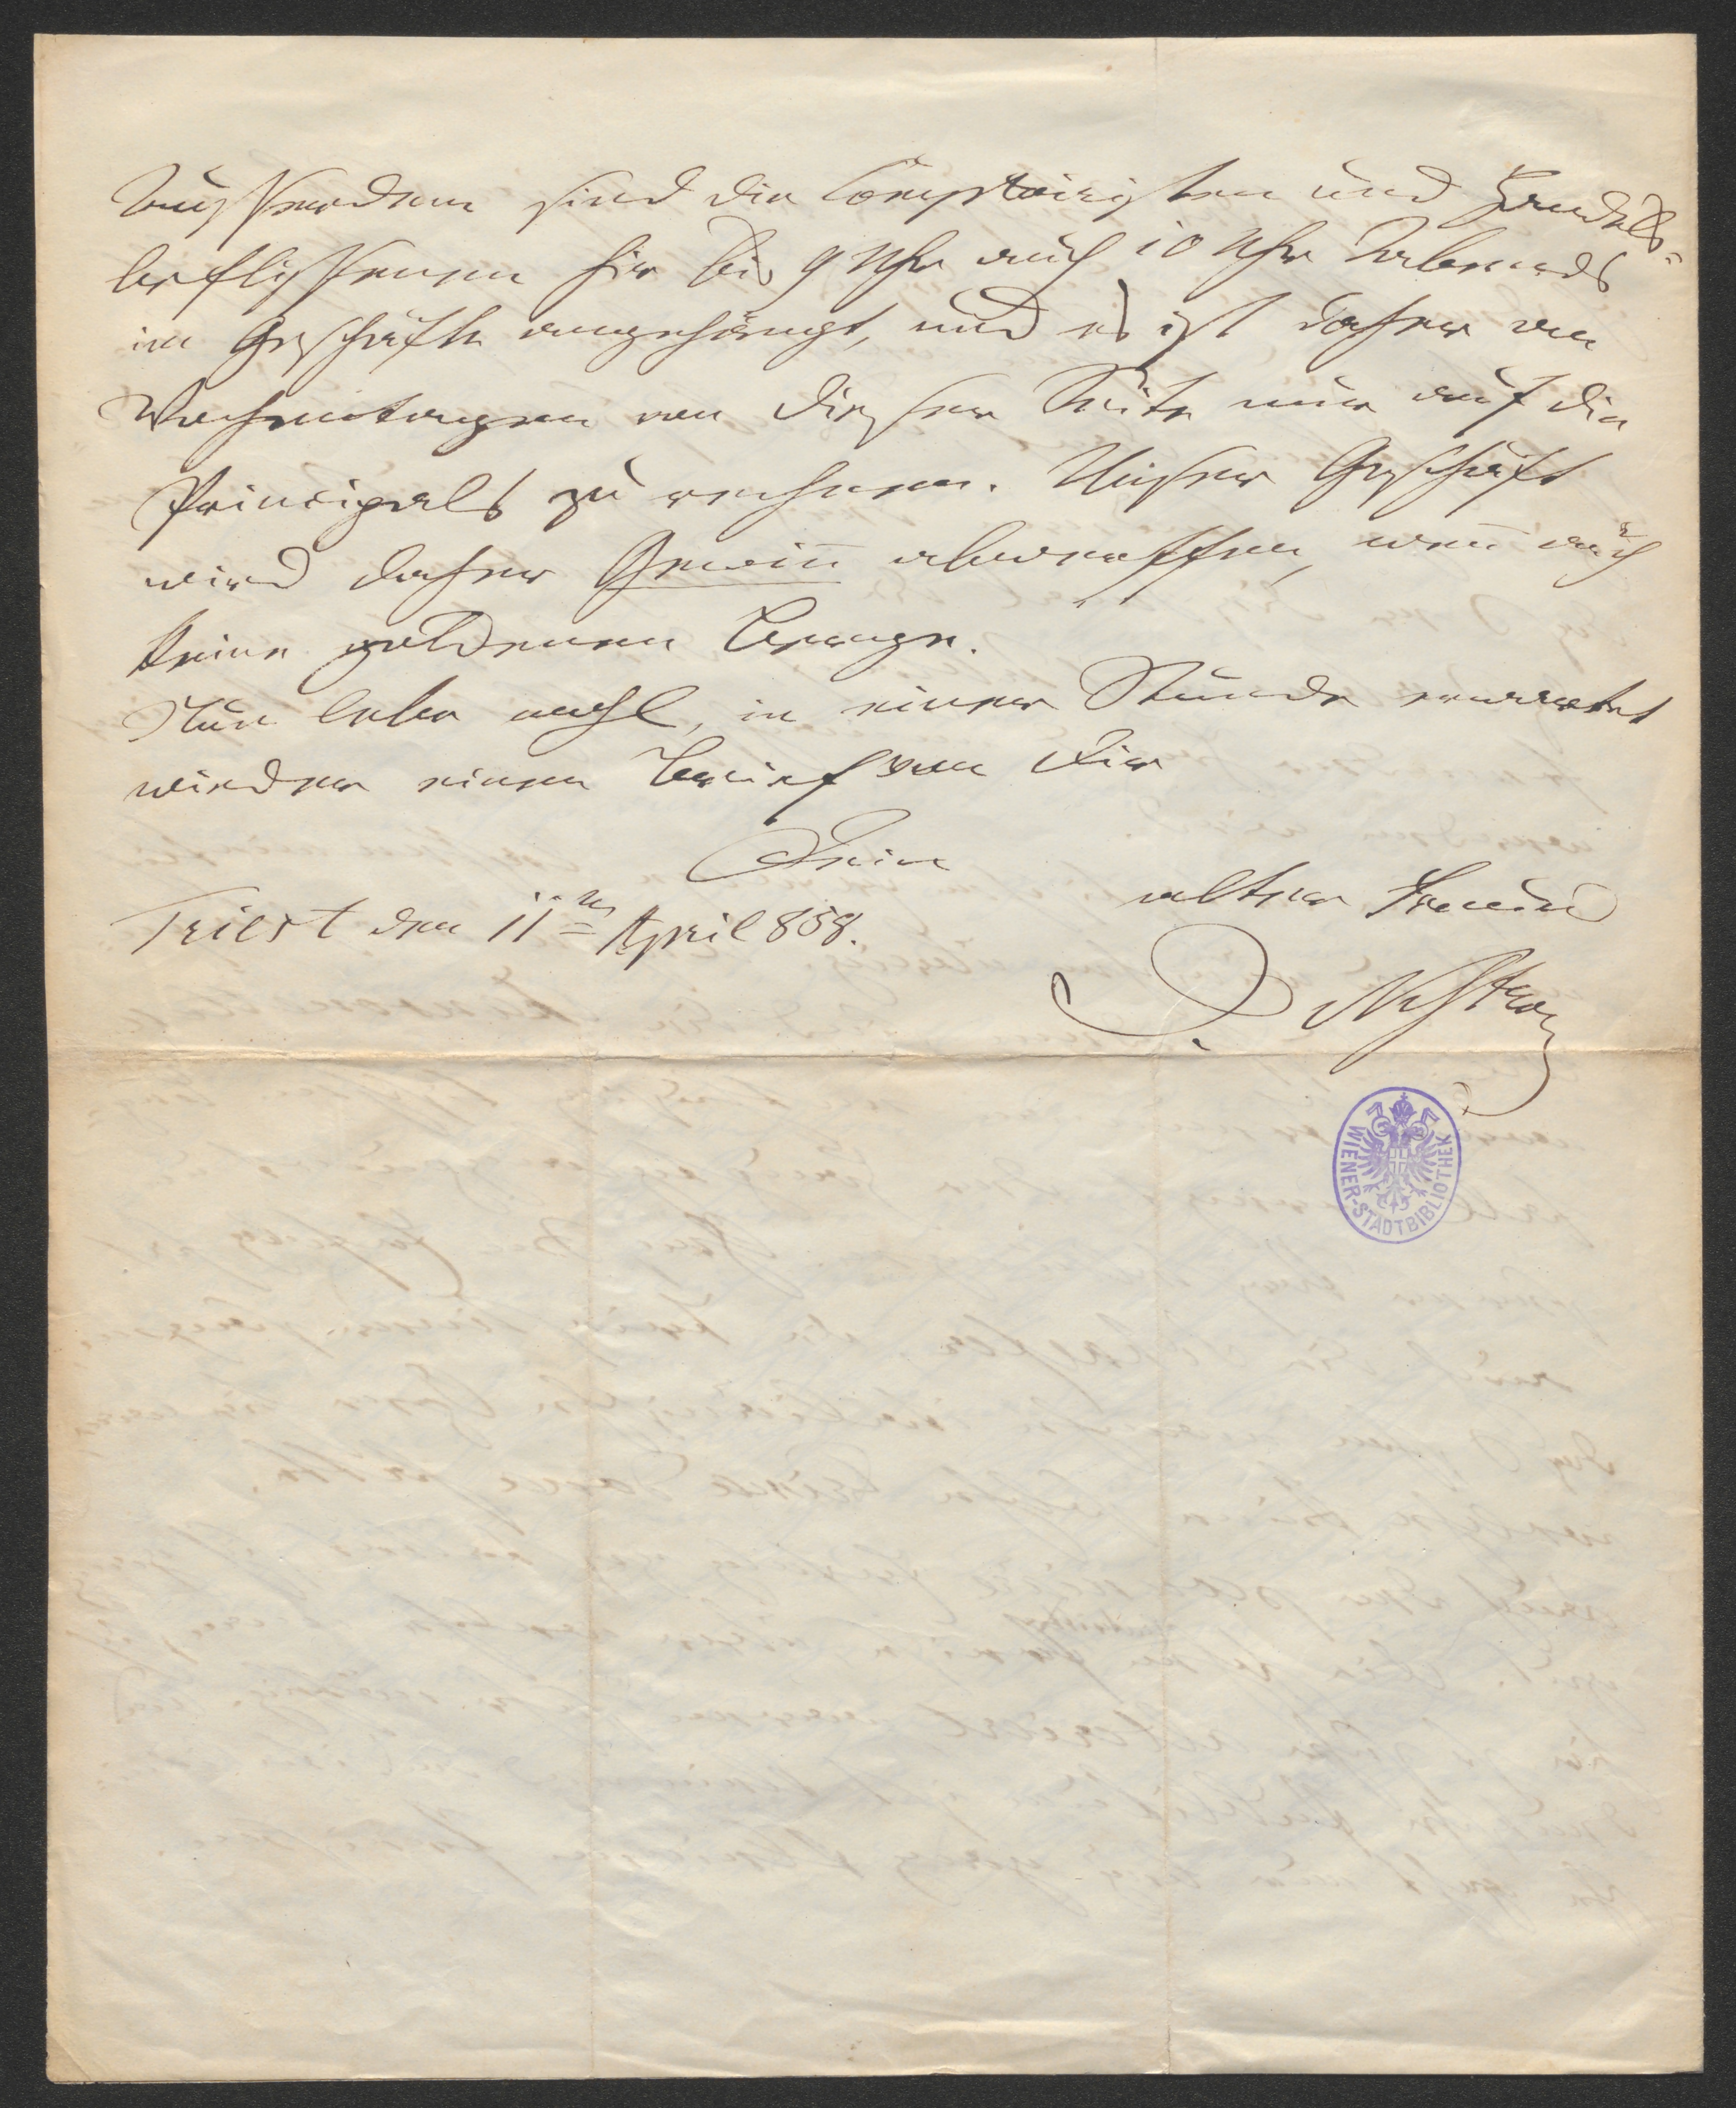 Ausserdem sind die Comptoiristen und Handels-
beflissenen hir bis 9 Uhr auch 10 Uhr Abends
im Geschäfte angehängt, und es ist daher an
Wochentagen von dieser Seite nur auf die
Principals zu rechnen. Unser Geschäft
wird daher Gewin̅ abwerffen, wen̅ auch
keine goldenen Berge.
Nun lebe wohl, in einer Stunde erwartet
wieder einen Brief von Dir
Dein
alter Freund
Triest den 11ten April 858.
J. Nestroy
WIENER-STADTBIBLIOTHEK